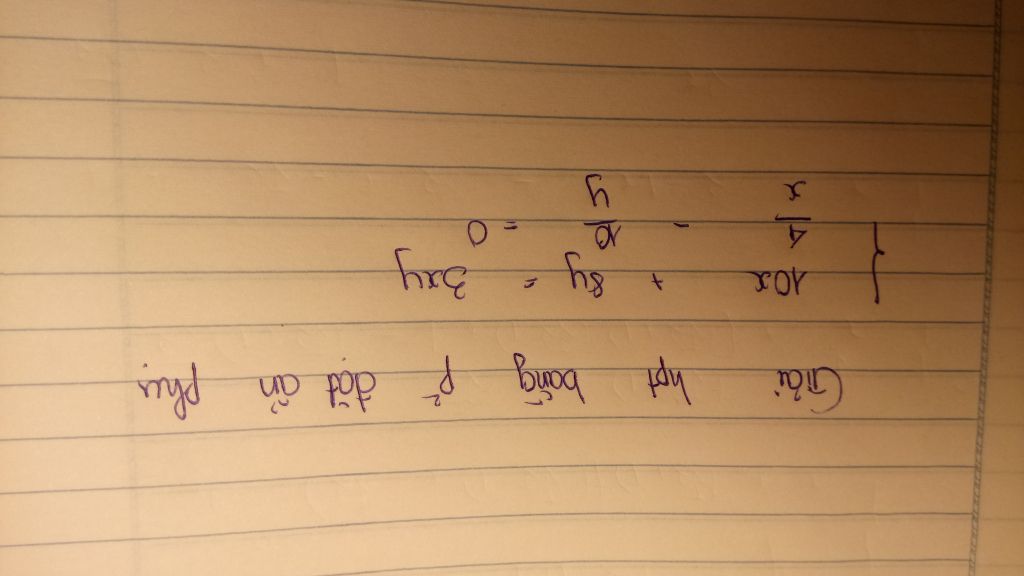 Giải hpt bằng p² đặt ẩn phụ
10x + 8y = 3xy
4/x - 10/y = 0